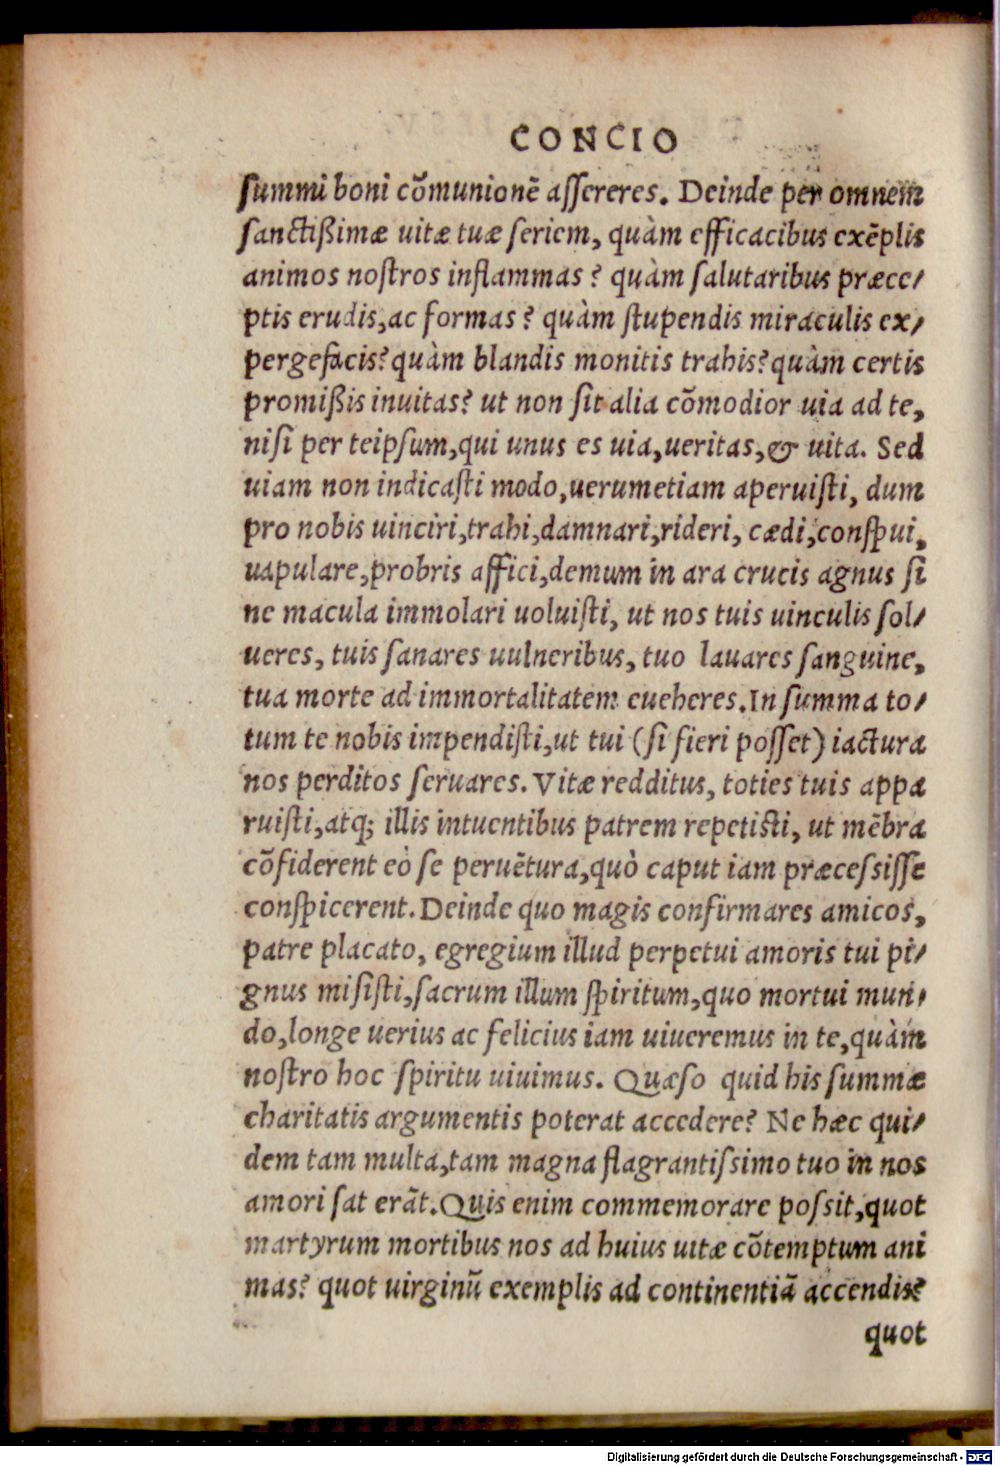 CONCIO
summi boni cõmunionẽ assereres. Deinde per omnem
sanctißimæ uitæ tuæ seriem, quàm efficacibus exẽplis
animos nostros inflammas? quàm salutaribus præce/
ptis erudis,ac formas? quàm stupendis miraculis ex/
pergefacis? quàm blandis monitis trahis? quàm certis
promißis inuitas? ut non sit alia cõmodior uia ad te,
nisi per teipsum,qui unus es uia,ueritas,& uita. Sed
uiam non indicasti modo,uerumetiam aperuisti, dum
pro nobis uinciri,trahi,damnari,rideri, cædi,conspui,
uapulare,probris affici,demum in ara crucis agnus si
ne macula immolari uoluisti, ut nos tuis uinculis sol/
ueres, tuis sanares uulneribus, tuo lauares sanguine,
tua morte ad immortalitatem eueheres.In summa to/
tum te nobis impendisti,ut tui (si fieri posset) iactura
nos perditos seruares. Vitæ redditus, toties tuis appa
ruisti,atq; illis intuentibus patrem repetisti, ut mẽbra
cõfiderent eò se peruẽtura,quò caput iam præcessisse
conspicerent. Deinde quo magis confirmares amicos,
patre placato, egregium illud perpetui amoris tui pi/
gnus misisti,sacrum illum spiritum,quo mortui mun/
do,longe uerius ac felicius iam uiueremus in te,quàm
nostro hoc spiritu uiuimus. Quæso quid his summæ
charitatis argumentis poterat accedere? Ne hæc qui/
dem tam multa,tam magna flagrantissimo tuo in nos
amori sat erãt.Quis enim commemorare possit,quot
martyrum mortibus nos ad huius uitæ cõtemptum ani
mas? quot uirginũ exemplis ad continentiã accendis?
quot
Digitalisierung gefördert durch die Deutsche Forschungsgemeinschaft - DFG